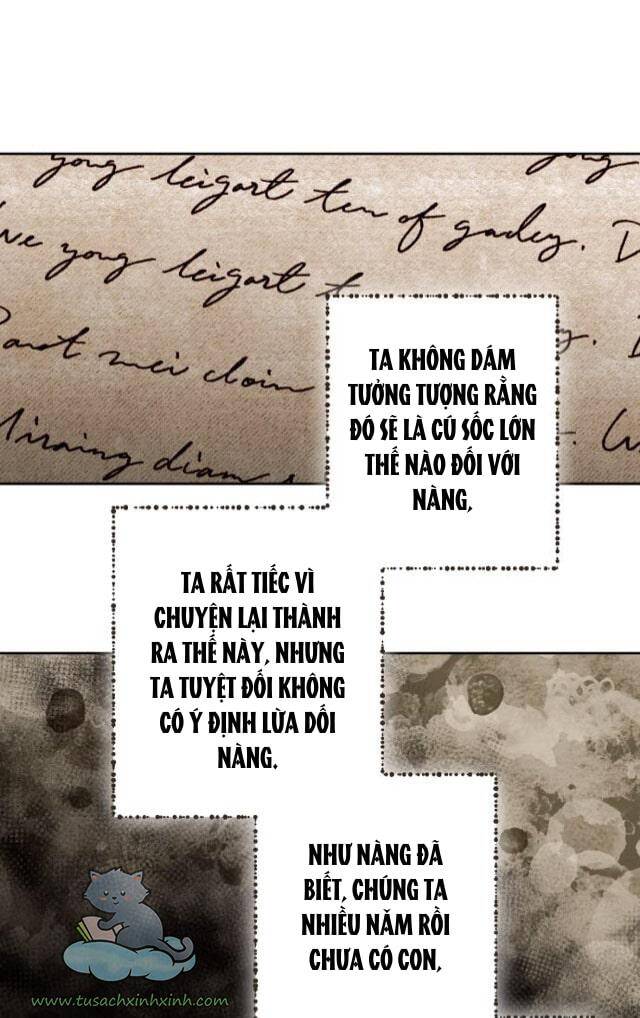 yong leigart ten of gadey. D
ve yong leigart t
mei cloin
diam
TA KHÔNG DÁM
TƯỞNG TƯỢNG RẰNG
ĐÓ SẼ LÀ CÚ SỐC LỚN
THẾ NÀO ĐỐI VỚI
NÀNG,
TA RẤT TIẾC VÌ
CHUYỆN LẠI THÀNH
RA THẾ NÀY, NHƯNG
TA TUYỆT ĐỐI KHÔNG
CÓ Ý ĐỊNH LỪA DỐI
NÀNG.
NHƯ NÀNG ĐÃ
BIẾT, CHÚNG TA
NHIỀU NĂM RỒI
CHƯA CÓ CON,
www.tusachxinhxinh.com